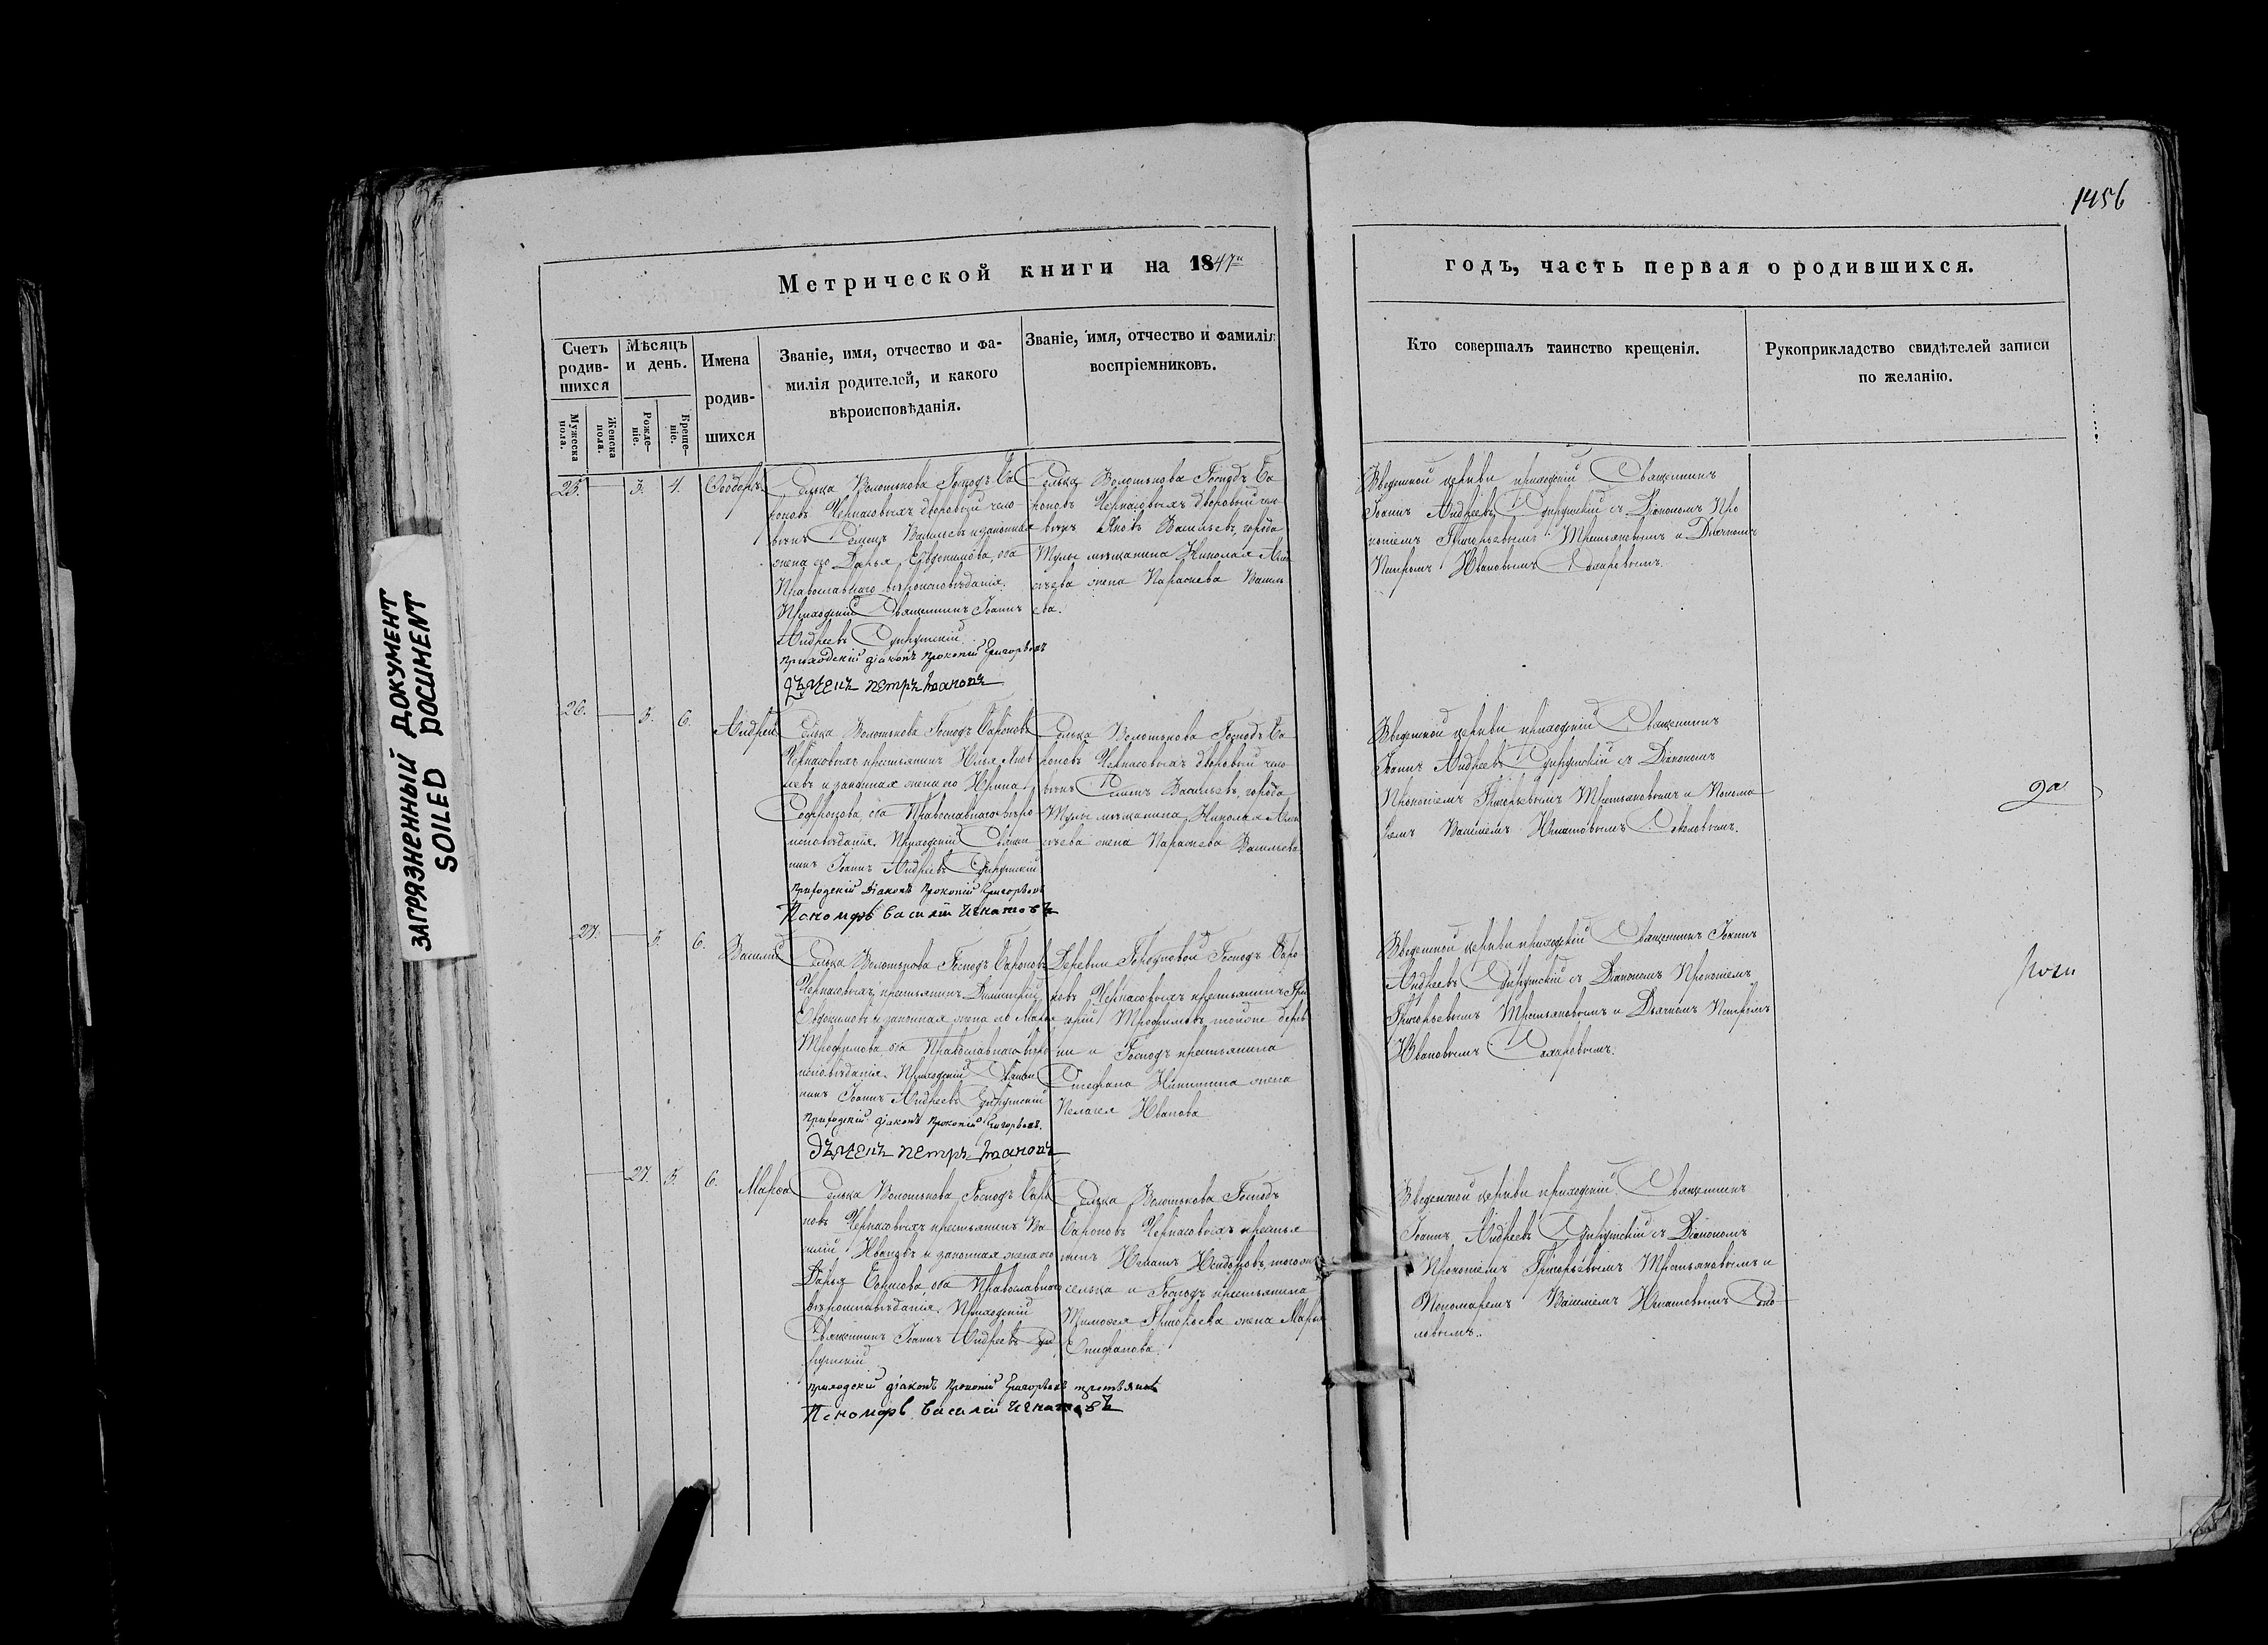 1456
Метрической книги на 1847й
годъ, часть первая о родившихся.
Счетъ родив-шихся
Мѣсяцъ и день.
Имена родив-шихся
Званіе, имя, отчество и фа-
милія родителей, и какого
вѣроисповѣданія.
Званіе, имя, отчество и фамилія
воспріемниковъ.
Кто совершалъ таинство крещенія.
Рукоприкладство свидѣтелей записи
по желанію.
Мужеска пола.
Женска пола.
Рожде-ніе.
Креще-ніе.
25. 3. 4. Ѳеодоръ.
Сельца Волотькова Господъ Ба
роновъ Черкасовыхъ дворовый чело
вѣкъ Семенъ Васильевъ и законная
жена его Дарья Евдокимова, оба
Православнаго вѣроисповѣданія.
Приходскій Священникъ Іоаннъ
Андреевъ Супрутскій
приходскій діаконъ Прокопій Григорьевъ
дьячекъ петръ Ивановъ
Сельца Волотькова Господъ Ба
роновъ Черкасовыхъ дворовый чело
вѣкъ Яковъ Васильевъ, города
Тулы мѣщанина Николая Алек
сѣева жена Параскева Василь
ева.
Введенской церкви приходскій Священникъ
Іоаннъ Андреевъ Супрутскій съ Діакономъ Про
копіемъ Григорьевымъ Третьяковымъ и Дьячкомъ
Петромъ Ивановымъ Сахаровымъ.
26. 5. 6. Андрей
Сельца Волотькова Господъ Бароновъ
Черкасовыхъ крестьянинъ Илья Яков
левъ и законная жена его Ирина
Софронова, оба Православнаго вѣро
исповѣданія. Приходскій Священ
никъ Іоаннъ Андреевъ Супрутскій
приходскій діаконъ Прокопій Григорьевъ
Пономарь Василій Игнатовъ
Сельца Волотькова Господъ Ба
роновъ Черкасовыхъ дворовый чело
вѣкъ Семенъ Васильевъ, города
Тулы мѣщанина Николая Алек
сѣева жена Параскева Васильева
Введенской церкви приходскій Священникъ
Іоаннъ Андреевъ Супрутскій съ Діакономъ
Прокопіемъ Григорьевымъ Третьяковымъ и Понома
ремъ Василіемъ Игнатовымъ Соколовымъ.
27. 5. 6. Василій
Сельца Волотькова Господъ Бароновъ
Черкасовыхъ крестьянинъ Димитрій
Евдокимовъ и законная жена его Марья
Трофимова оба Православнаго вѣро
исповѣданія. Приходскій Священ
никъ Іоаннъ Андреевъ Супрутскій
приходскій діаконъ Прокопій Григорьевъ.
дьячекъ петръ Ивановъ
Деревни Господъ Баро
новъ Черкасовыхъ крестьянинъ Гри
горій Трофимовъ, тойже дерев
ни и Господъ крестьянина
Стефана Никитина жена
Пелагея Иванова
Введенской церкви приходскій Священникъ Іоаннъ
Андреевъ Супрутскій съ Діакономъ Прокопіемъ
Григорьевымъ Третьяковымъ и Дьячкомъ Петромъ
Ивановымъ Сахаровымъ.
27. 5. 6. Марѳа
Сельца Волотькова Господъ Баро
новъ Черкасовыхъ крестьянинъ Ва
силій Ивановъ и законная жена его
Дарья Борисова, оба Православнаго
вѣроисповѣданія. Приходскій
Священникъ Іоаннъ Андреевъ Суп
рутскій
приходскій діаконъ Прокопій Григорьевъ третьяковъ
Пономарь Василій Игнатовъ
Сельца Волотькова Господъ
Бароновъ Черкасовыхъ крестья
нинъ тогоже
сельца и Господъ крестьянина
Тимоѳея Григорьева жена Марья
Епифанова.
Введенской церкви приходскій Священникъ
Іоаннъ Андреевъ Супрутскій съ Діакономъ
Прокопіемъ Григорьевымъ Третьяковымъ и
Пономаремъ Василіемъ Игнатовымъ Соко
ловымъ.
ЗАГРЯЗНЕННЫЙ ДОКУМЕНТ
SOILED DOCUMENT